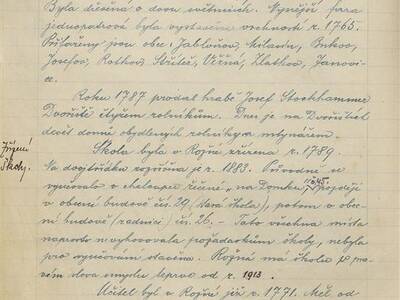 Byla dřevěná o dvou světnicích. Nynější fara
jednopatrová byla vystavěna vrchností r. 1765.
Přifařeny jsou obce: Jabloňov, Milasín, Bukov,
Josefov, Rotkov, Střítež, Věžná, Zlatkov, Janovi-
ce.
Roku 1787 prodal hrabě Josef Stockhammer
Dvořiště čtyřem rolníkům. Dnes je na Dvořištích
devět domů obydlených rolníky a mlynářem.
Zřízení
školy.
Škola byla v Rožné zřízena r. 1789.
Na dvojtřídku rozšířena je r. 1883. Původně se
vyučovalo v chaloupce řečené „na Domku" později
v obecní budově čís. 29 (stará škola), potom v obe-
cní budově (radnici) čís. 26. - Tato všechna místa
naprosto nevyhovovala požadavkům školy, nebyla
pro vyučování stavěna. Rožná má školu v pra-
vém slova smyslu teprve od r. 1913.
Učitel byl v Rožné již r. 1771. Měl od